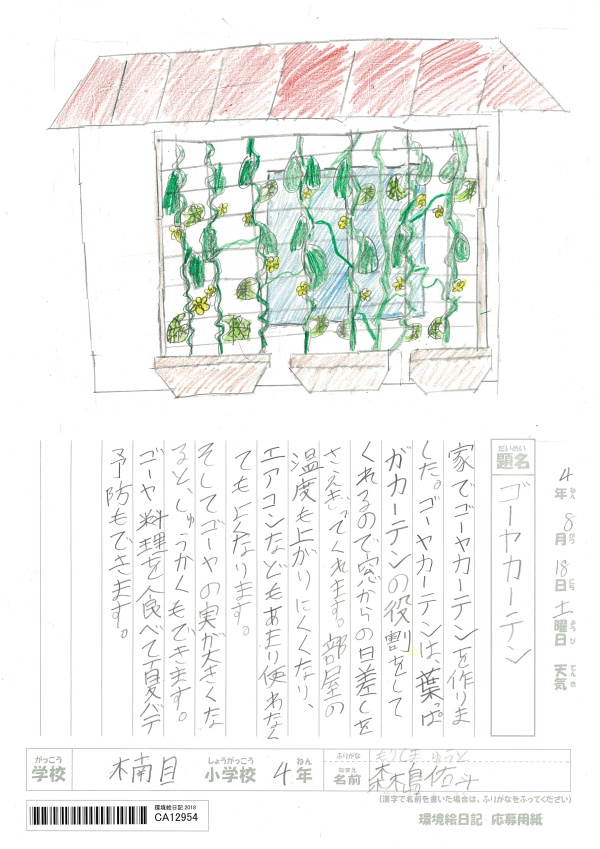 4年ねん 8月がつ 18日にち 土曜日ようび 天気てんき
題名だいめい
ゴーヤカーテン
家でゴーヤカーテンを作りま
した。ゴーヤカーテンは、葉っぱ
がカーテンの役割をして
くれるので窓からの日差しを
さえぎってくれます。部屋の
温度も上がりにくくなり、
エアコンなどもあまり使わなく
てもよくなります。
そしてゴーヤの実が大きくな
ると、しゅうかくもできます。
ゴーヤ料理を食べて夏バテ
予防もできます。
学校がっこう 楠目 小学校しょうがっこう 4年ねん
ふりがな もりしま ゆうと
名前なまえ 森嶋佑斗
(漢字で名前を書いた場合は、ふりがなをふってください)
環境絵日記 2018
CA12954
環境絵日記 応募用紙